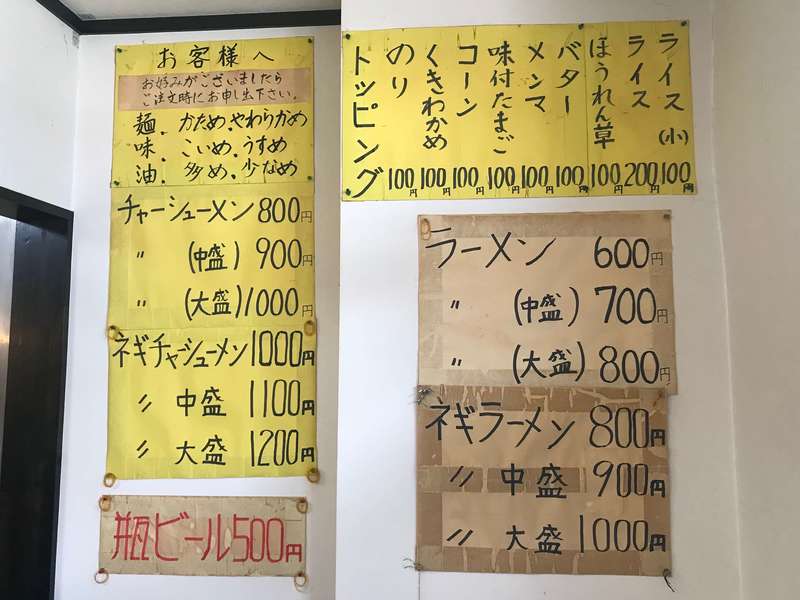 お客様へ
お好みがございましたら
ご注文時にお申し出下さい。
麺．かため．やわらかめ
味．こいめ．うすめ
油．多め．少なめ
チャーシューメン 800円
〃 (中盛) 900円
〃 (大盛) 1000円
ネギチャーシューメン 1000円
〃 中盛 1100円
〃 大盛 1200円
瓶ビール 500円
トッピング
のり 100円
くきわかめ 100円
コーン 100円
味付たまご 100円
メンマ 100円
バター 100円
ほうれん草 100円
ライス 200円
ライス(小) 100円
ラーメン 600円
〃 (中盛) 700円
〃 (大盛) 800円
ネギラーメン 800円
〃 中盛 900円
〃 大盛 1000円